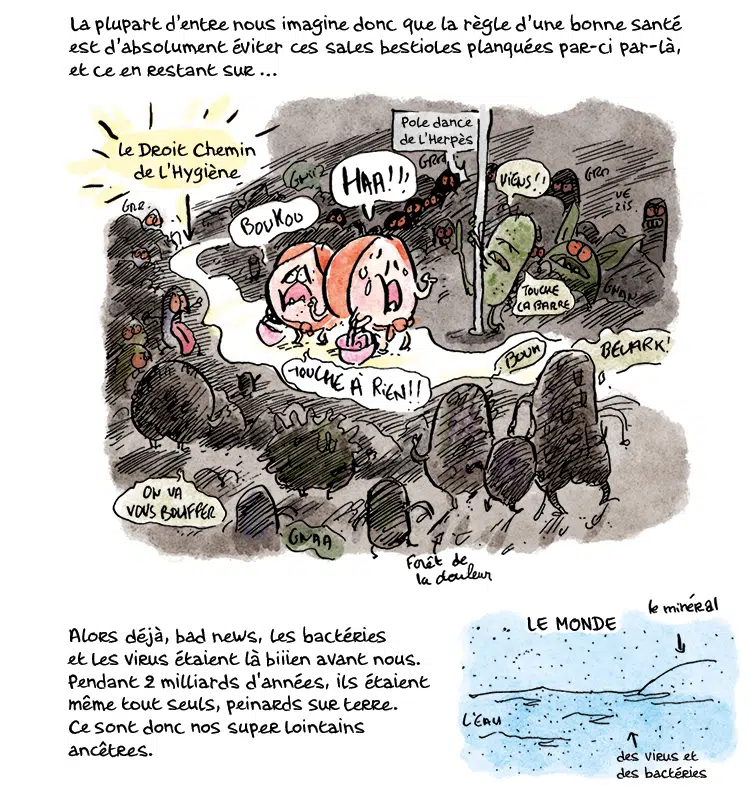 La plupart d'entre nous imagine donc que la règle d'une bonne santé
est d'absolument éviter ces sales bestioles planquées par-ci par-là,
et ce en restant sur ...
Le Droit Chemin
de l'Hygiène
Pole dance
de l'Herpès
GRR
HAA!!!
VIENS!!
GRO
VE
ZIS
BOUHOU
TOUCHE
LA BARRE
GNAN
TOUCHE À RIEN!!
BOUH
BEUARK!
ON VA
VOUS BOUFFER
GNAA
Forêt de
la douleur
Alors déjà, bad news, les bactéries
et les virus étaient là biiien avant nous.
Pendant 2 milliards d'années, ils étaient
même tout seuls, peinards sur terre.
Ce sont donc nos super lointains
ancêtres.
le minéral
LE MONDE
L'EAU
des virus et
des bactéries